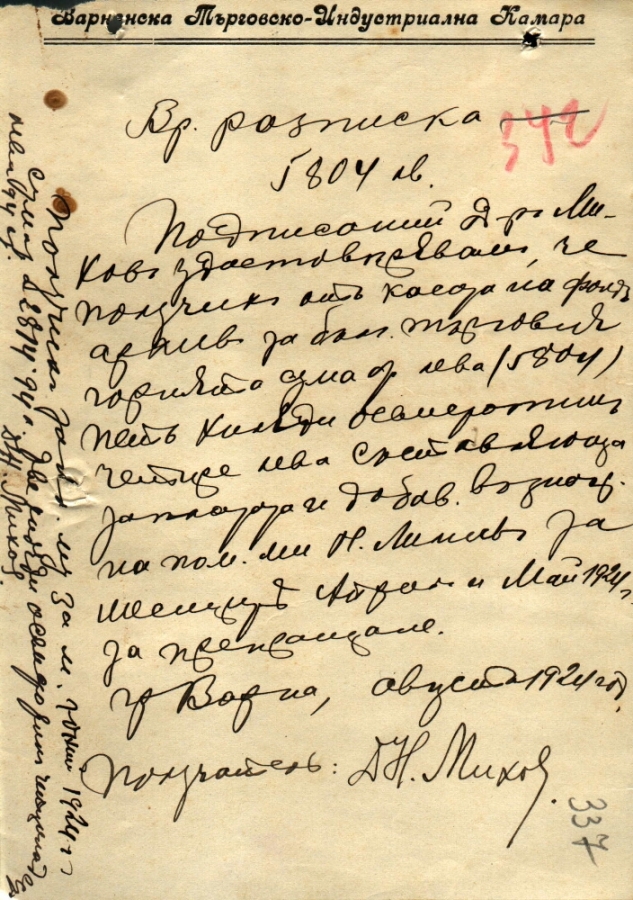 Варненска Търговско-Индустриална Камара
Вр. разписка
342
5804 лв.
Подписаний Д-ръ Ми-
ковъ удостовѣрявамъ, че
получихъ отъ касата на фонда
за бълг. търговия
горнята сума от лева (5804)
петь хиляди осемстотинъ
четире лева съставляюща
заплата и добав. възнагр.
на пом. ми Н. за
месецитѣ Априлъ и Май 1924 г.
за преписване.
гр Варна, августъ 1924 год.
Получателъ: Д Н. Михов.
337
Получихъ запл. му за м. юний 1924 г.
сума 2814.94 л. Две хиляди осем
Д Н. Михов